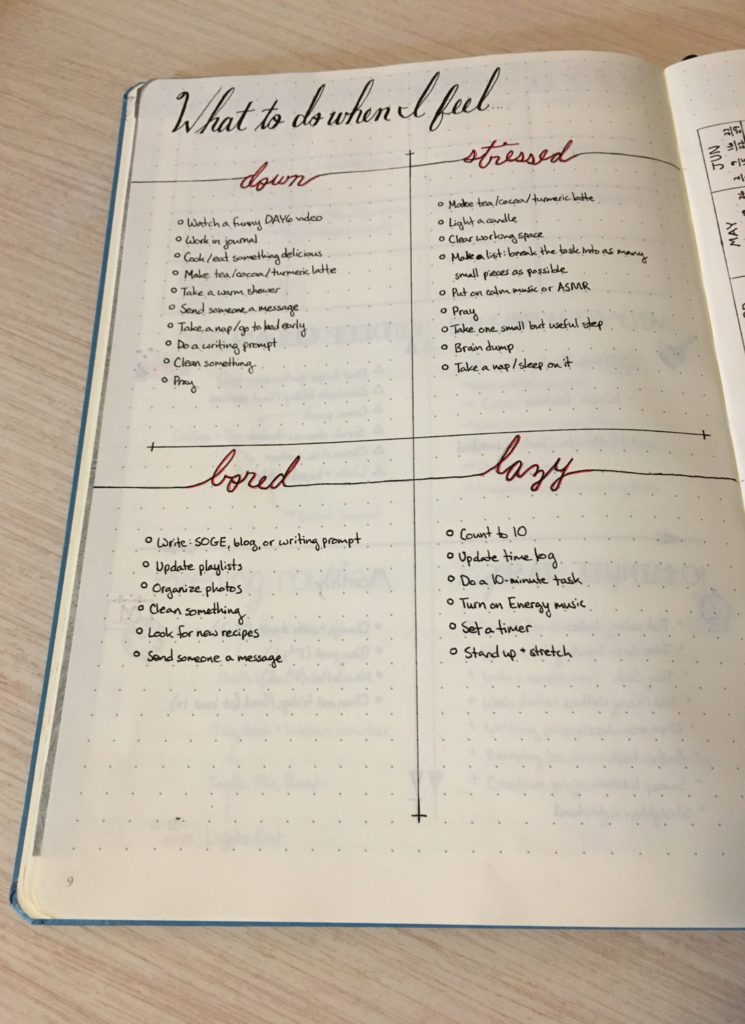 What to do when I feel...
down
Watch a funny DAY6 video
Work in journal
Cook/eat something delicious
Make tea/cocoa/turmeric latte
Take a warm shower
Send someone a message
Take a nap/go to bed early
Do a writing prompt
Clean something
Pray
stressed
Make tea/cocoa/turmeric latte
Light a candle
Clear working space
Make a list: break the task into as many
small pieces as possible
Put on calm music or ASMR
Pray
Take one small but useful step
Brain dump
Take a nap/sleep on it
bored
Write: SOGE, blog, or writing prompt
Update playlists
Organize photos
Clean something
Look for new recipes
Send someone a message
lazy
Count to 10
Update time log
Do a 10-minute task
Turn on Energy music
Set a timer
Stand up + stretch
9
JUN
MAY